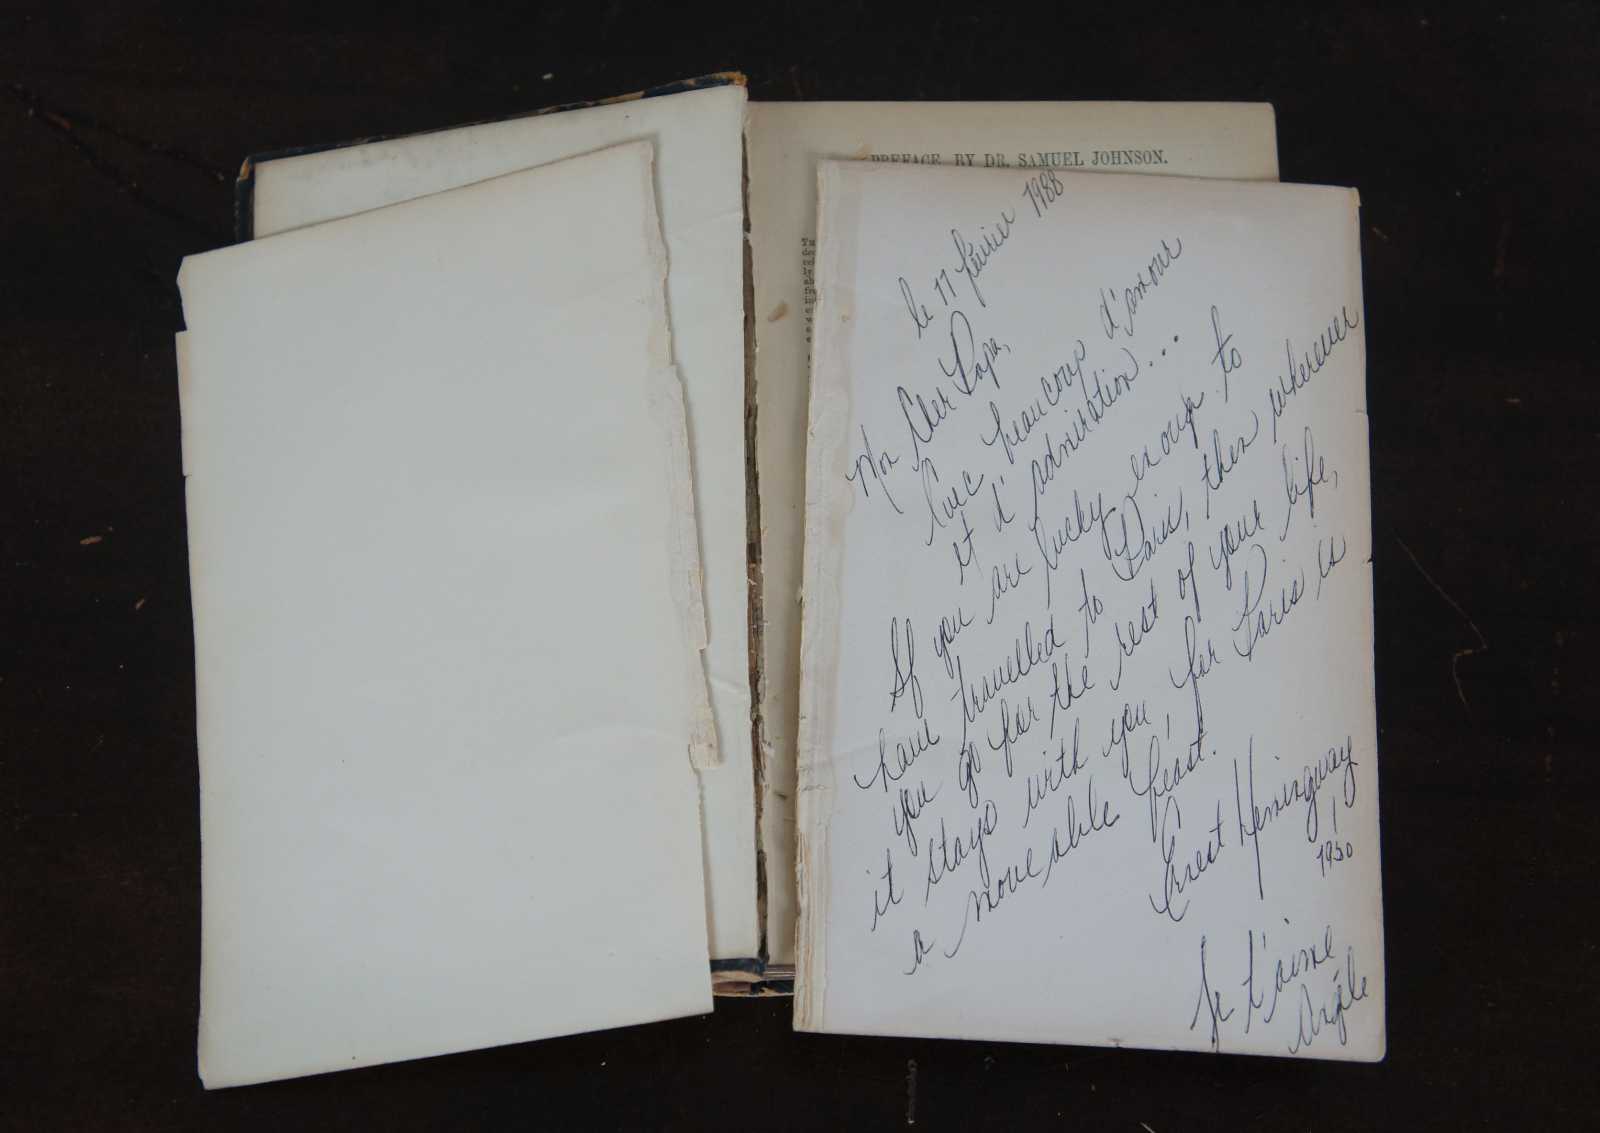 PREFACE BY DR. SAMUEL JOHNSON.
le 11 février 1988
Mon Cher Papa,
Avec beaucoup d'amour
et d'admiration...
If you are lucky enough to
have travelled to Paris, then wherever
you go for the rest of your life,
it stays with you, for Paris is
a moveable feast.
Ernest Hemingway
1950
Je t'aime
Angèle